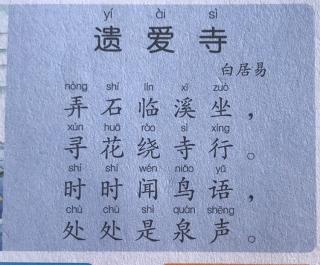 yí ài sì
遗爱寺
白居易
nòng shí lín xī zuò
弄石临溪坐，
xún huā rào sì xíng
寻花绕寺行。
shí shí wén niǎo yǔ
时时闻鸟语，
chù chù shì quán shēng
处处是泉声。